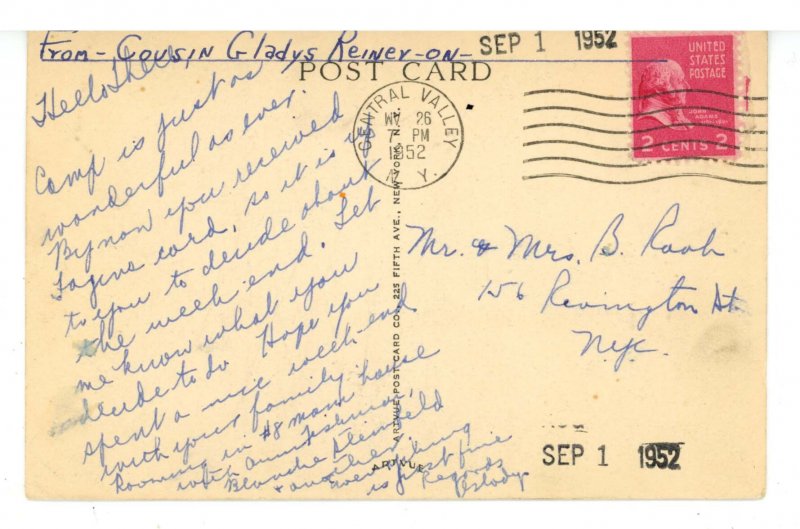 From - Cousin Gladys Reiner - on -
SEP 1 1952
POST CARD
UNITED
STATES
POSTAGE
JOHN
ADAMS
2 CENTS 2
CENTRAL VALLEY
26
7 PM
1952
N. Y.
Hello
Camp is just as
wonderful as ever.
By now you received
card, so it is up
to you to decide about
the week end. Let
me know what you
decide to do Hope you
spent a nice week end
with your family.
Rooming in #8 Main house
with Ann
Blanche Steinfeld
& another,
everything
is just fine
Regards
Mr. & Mrs. B. Raab
156 Rivington St.
Nyc.
ARTVUE POST CARD CO., 225 FIFTH AVE., NEW YORK, N.Y.
ARTVUE
SEP 1 1952